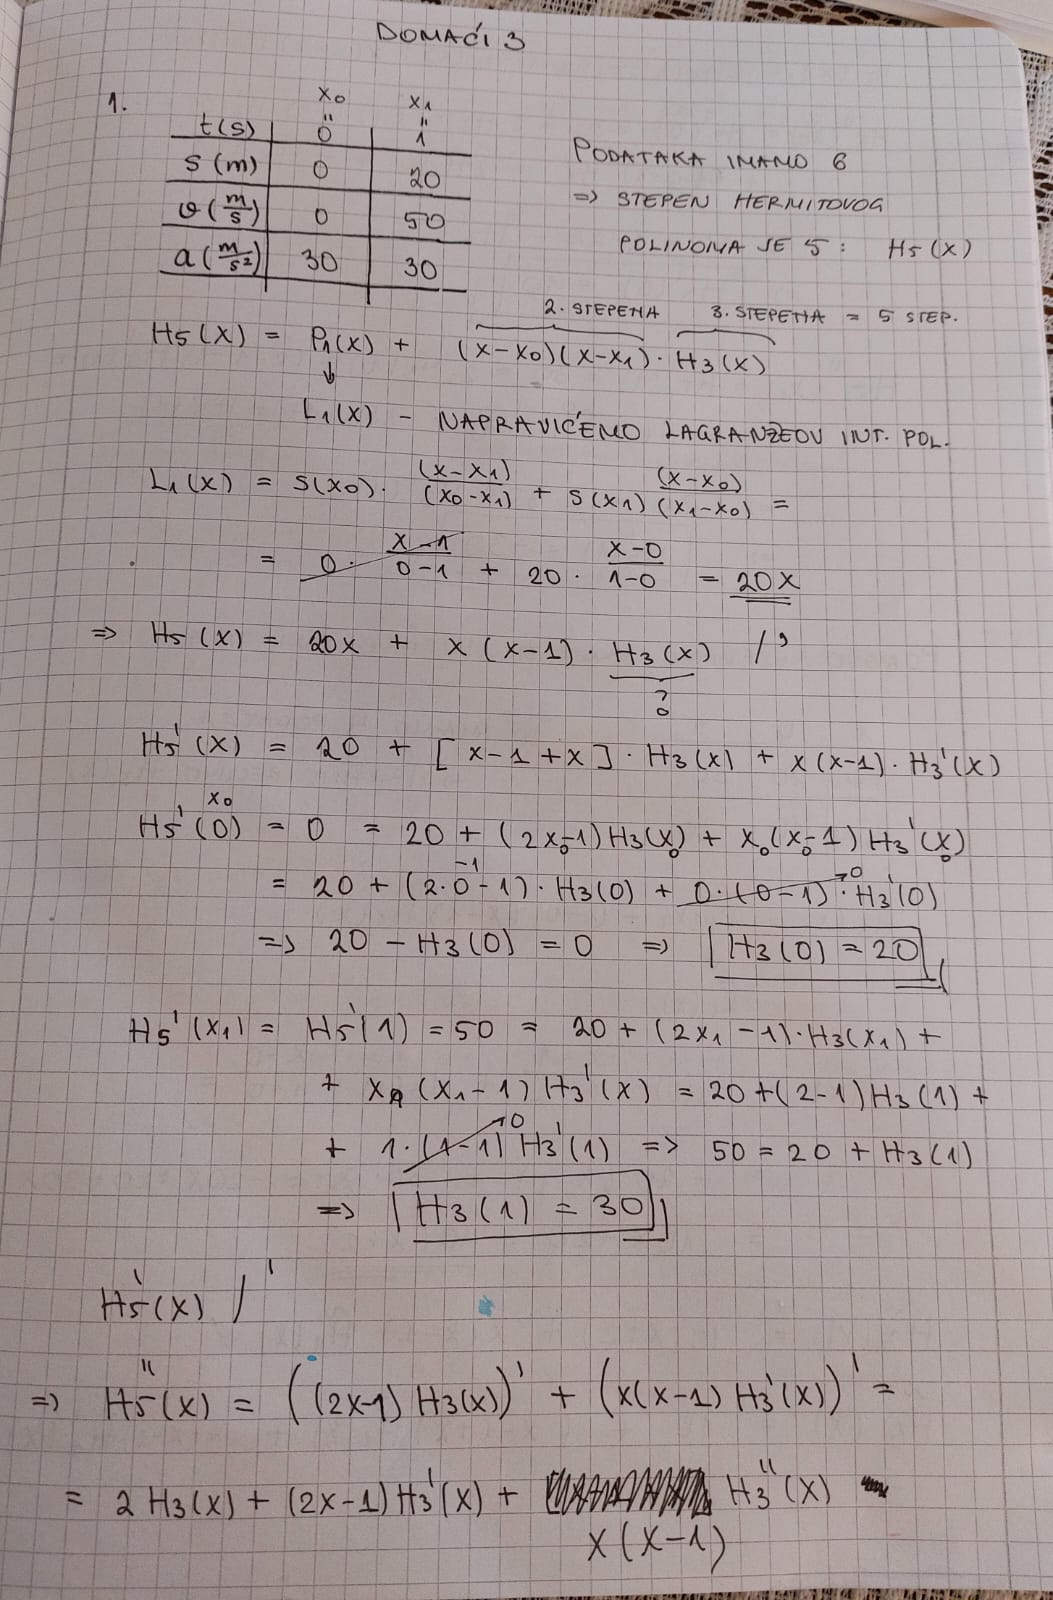 DOMAĆI 3
1.
x₀ x₁
" "
t(s) 0 1
s(m) 0 20
v(m/s) 0 50
a(m/s²) 30 30
PODATAKA IMAMO 6
=> STEPEN HERMITOVOG
POLINOMA JE 5: H₅(x)
2. STEPENA 3. STEPENA = 5 STEP.
H₅(x) = P₁(x) + (x-x₀)(x-x₁)·H₃(x)
↓
L₁(x) - NAPRAVIĆEMO LAGRANŽEOV INT. POL.
L₁(x) = s(x₀)·(x-x₁)/(x₀-x₁) + s(x₁)(x-x₀)/(x₁-x₀) =
= 0·(x-1)/(0-1) + 20·(x-0)/(1-0) = 20x
=> H₅(x) = 20x + x(x-1)·H₃(x) /'
?
H₅'(x) = 20 + [x-1+x]·H₃(x) + x(x-1)·H₃'(x)
x₀
H₅'(0) = 0 = 20 + (2x₀-1)H₃(x₀) + x₀(x₀-1)H₃'(x₀)
-1 0
= 20 + (2·0-1)·H₃(0) + 0·(0-1)·H₃'(0)
=> 20 - H₃(0) = 0 => H₃(0) = 20
H₅'(x₁) = H₅'(1) = 50 = 20 + (2x₁-1)·H₃(x₁) +
+ x₁(x₁-1)H₃'(x) = 20+(2-1)H₃(1) +
0
+ 1·(1-1)H₃'(1) => 50 = 20 + H₃(1)
=> H₃(1) = 30
H₅'(x) /'
=> H₅''(x) = ((2x-1)H₃(x))' + (x(x-1)H₃'(x))' =
= 2H₃(x) + (2x-1)H₃'(x) + H₃''(x)
x(x-1)